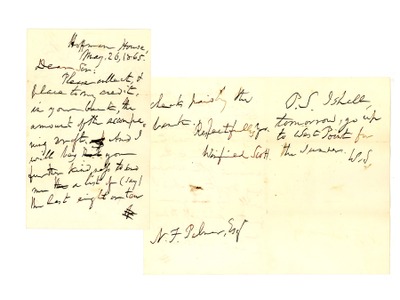 Hoffman House,
May. 26, 1865.
Dear Sir:
Please collect, &
place to my credit,
in your bank, the
amount of the accompa-
nying draft. And I
will beg you
further kindness to send
me a list of (say)
the last eight or ten
checks paid by the
bank. Respectfully, yrs.
Winfield Scott.
N. F. Palmer, Esq
P.S. I shall,
tomorrow, go up
to West Point for
the summer. W.S.